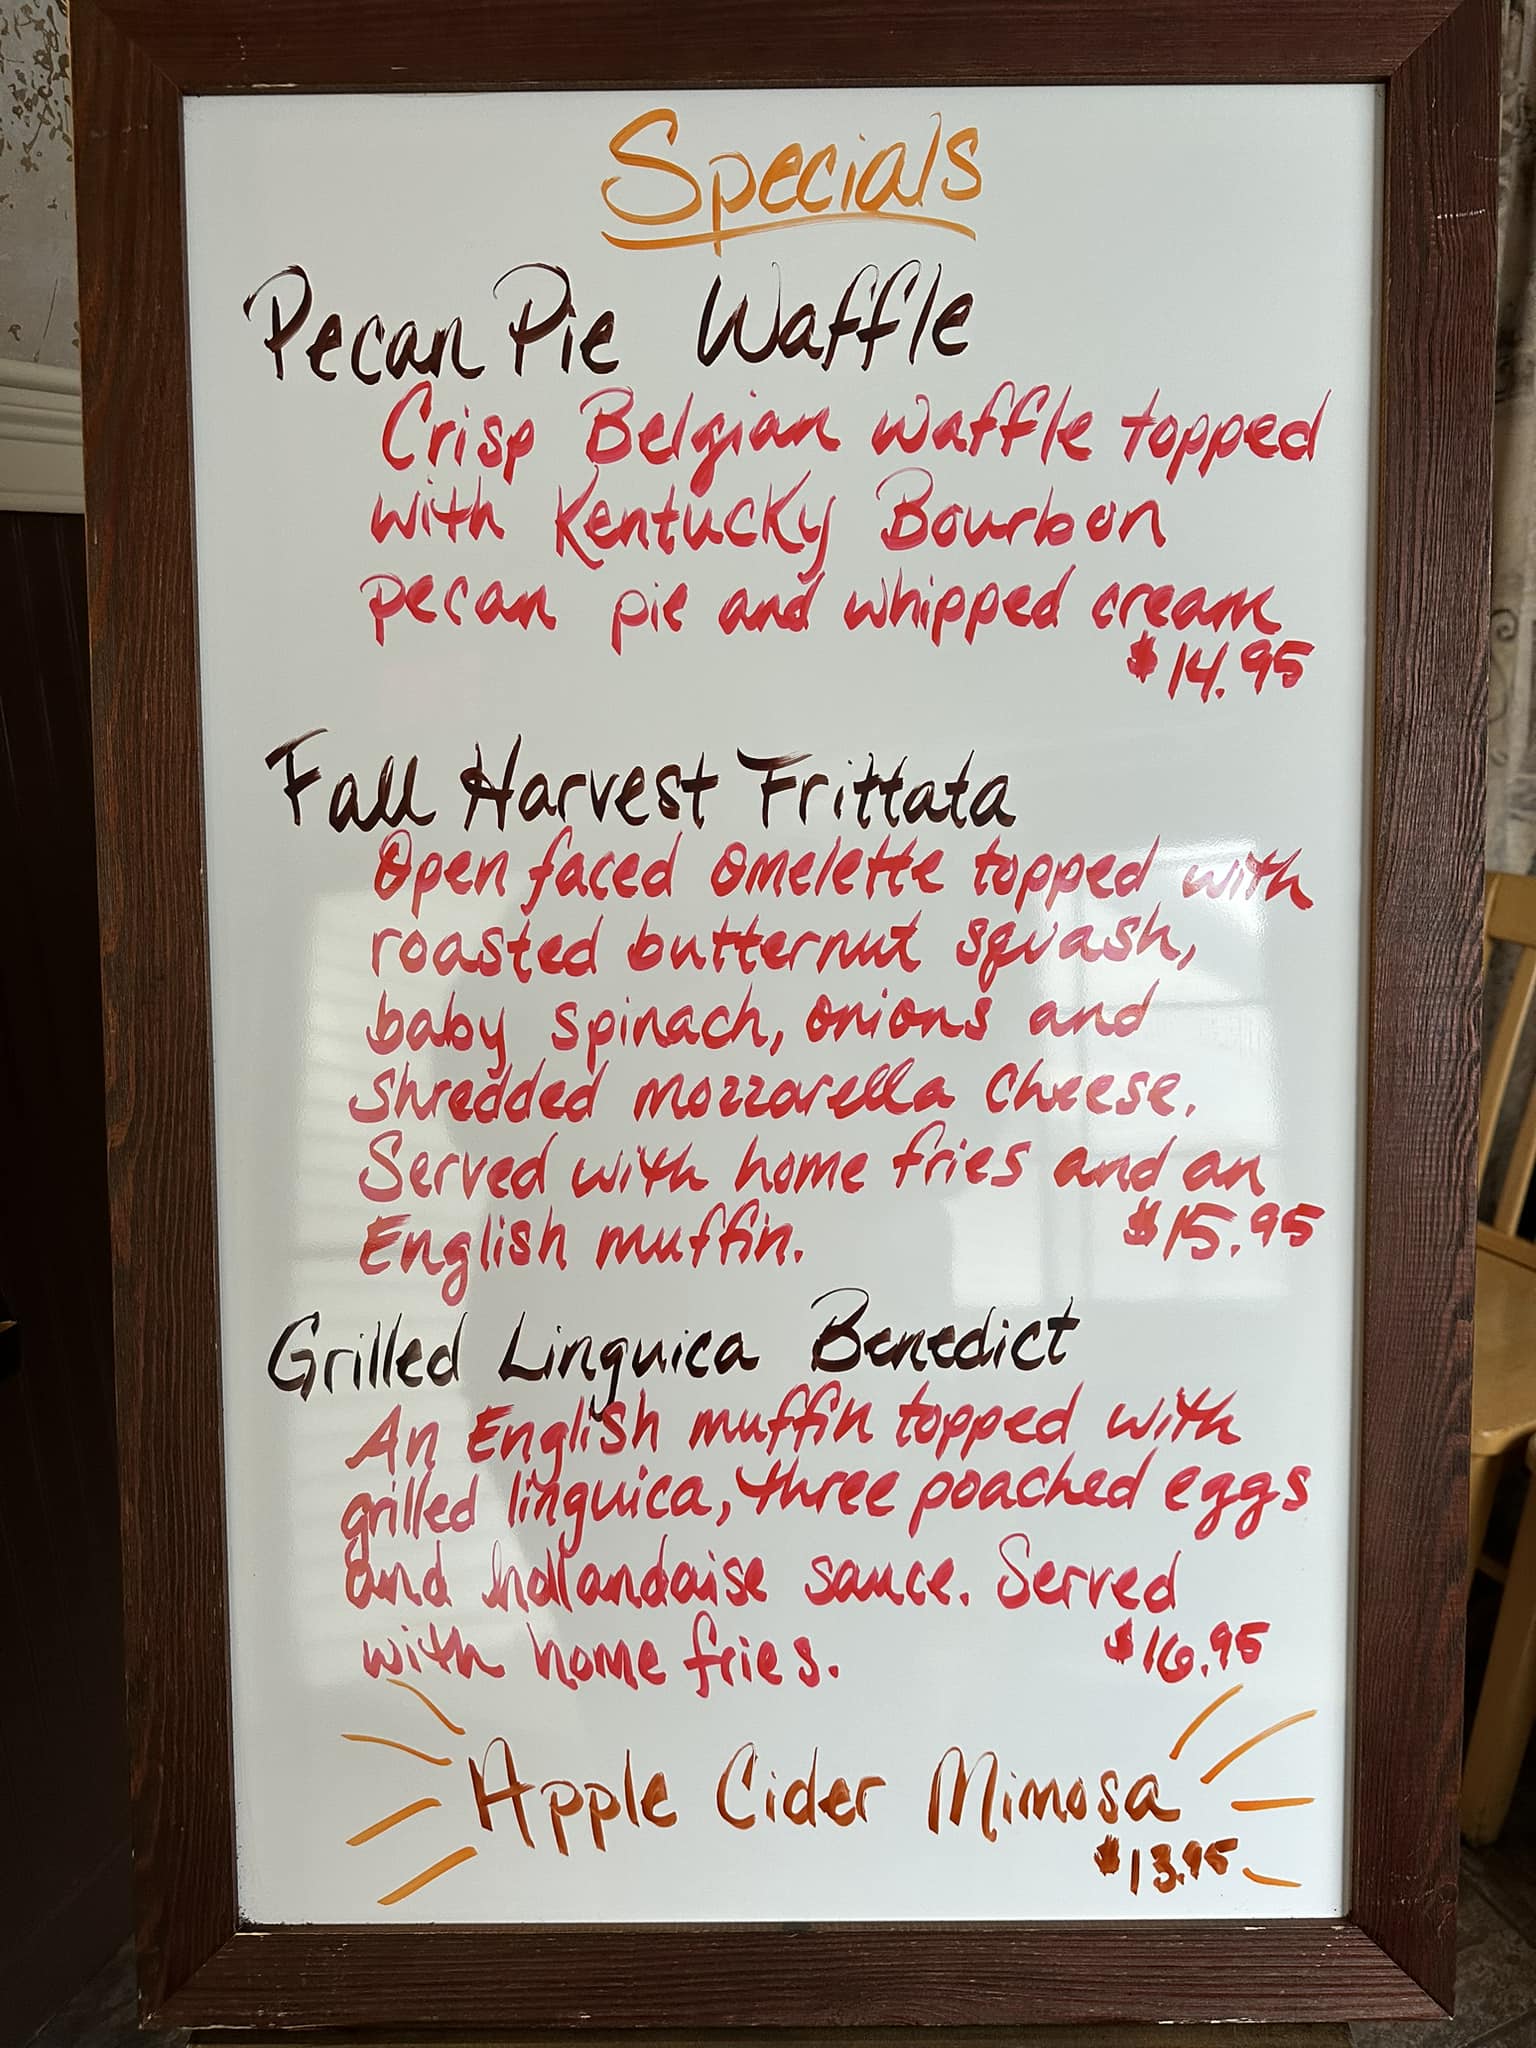 Specials
Pecan Pie Waffle
Crisp Belgian waffle topped
with Kentucky Bourbon
pecan pie and whipped cream
$14.95
Fall Harvest Frittata
Open faced omelette topped with
roasted butternut squash,
baby spinach, onions and
shredded mozzarella cheese.
Served with home fries and an
English muffin. $15.95
Grilled Linguica Benedict
An English muffin topped with
grilled linguica, three poached eggs
and hollandaise sauce. Served
with home fries. $16.95
Apple Cider Mimosa
$13.95